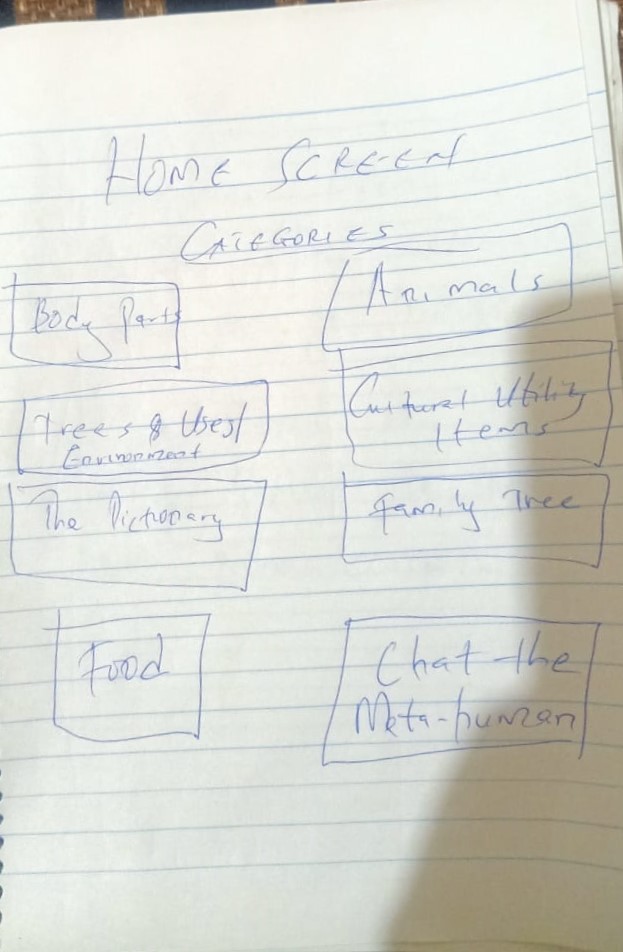 HOME SCREEN
CATEGORIES
Body Parts
Animals
Trees & Uses/
Environment
Cultural Utility
Items
The Dictionary
Family Tree
Food
Chat the
Meta-human